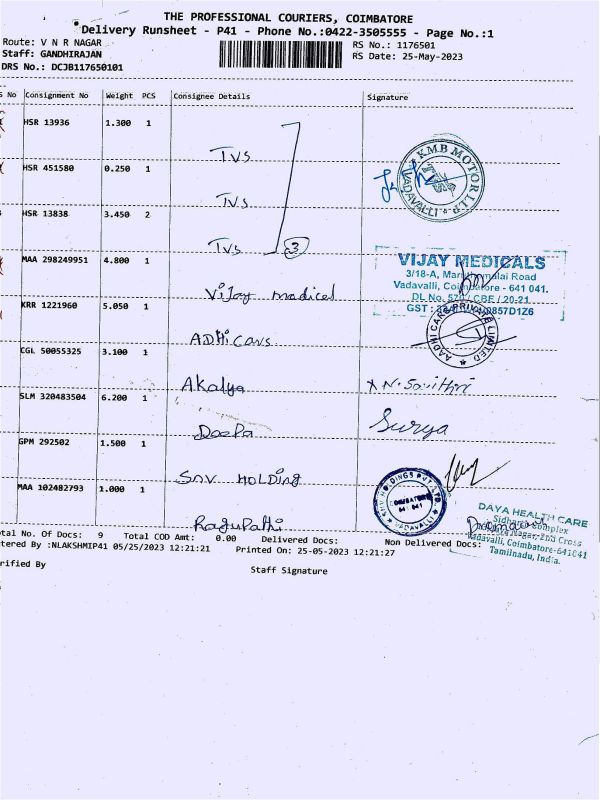 THE PROFESSIONAL COURIERS, COIMBATORE
Delivery Runsheet - P41 - Phone No.:0422-3505555 - Page No.:1
Route: V N R NAGAR
Staff: GANDHIRAJAN
DRS No.: DCJB117650101
RS No.: 1176501
RS Date: 25-May-2023
S No Consignment No Weight PCS Consignee Details Signature
HSR 13936 1.300 1 TVS
HSR 451580 0.250 1 TVS
HSR 13838 3.450 2 TVS 3
KMB MOTOR LLP
TVS
VADAVALLI
MAA 298249951 4.800 1 Vijay medical
VIJAY MEDICALS
3/18-A, Maruthamalai Road
Vadavalli, Coimbatore - 641 041.
DL No. CBE / 20-21
GST : 0857D1Z6
KRR 1221960 5.050 1 ADHi CAVS
AADHI CARE PRIVATE LIMITED
CGL 50055325 3.100 1 Akalya N. Savithri
SLM 320483504 6.200 1 Deepa Surya
GPM 292502 1.500 1 SNV HOLDing
HOLDINGS PVT. LTD.
COIMBATORE
641 041
VADAVALLI
MAA 102482793 1.000 1 Ragupathi
DAYA HEALTH CARE
Complex
Nagar, 2nd Cross
Vadavalli, Coimbatore-641041
Tamilnadu, India.
otal No. Of Docs: 9 Total COD Amt: 0.00 Delivered Docs: Non Delivered Docs:
tered By :NLAKSHMIP41 05/25/2023 12:21:21 Printed On: 25-05-2023 12:21:27
rified By
Staff Signature